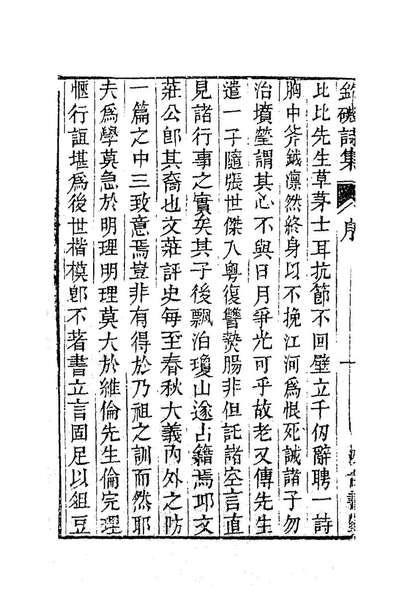 釣磯詩集 序
比比先生草茅士耳抗節不回壁立千仞辭聘一詩
胸中斧鉞凛然終身以不挽江河爲恨死誡諸子勿
治墳塋謂其心不與日月爭光可乎故老又傳先生
遣一子隨張世傑入粤復讐爇腸非但託諸空言直
見諸行事之實矣其子後飄泊瓊山遂占籍焉邱文
莊公卽其裔也文莊評史每至春秋大義内外之防
一篇之中三致意焉豈非有得於乃祖之訓而然耶
夫爲學莫急於明理明理莫大於維倫先生倫完理
愜行誼堪爲後世楷模卽不著書立言固足以俎豆